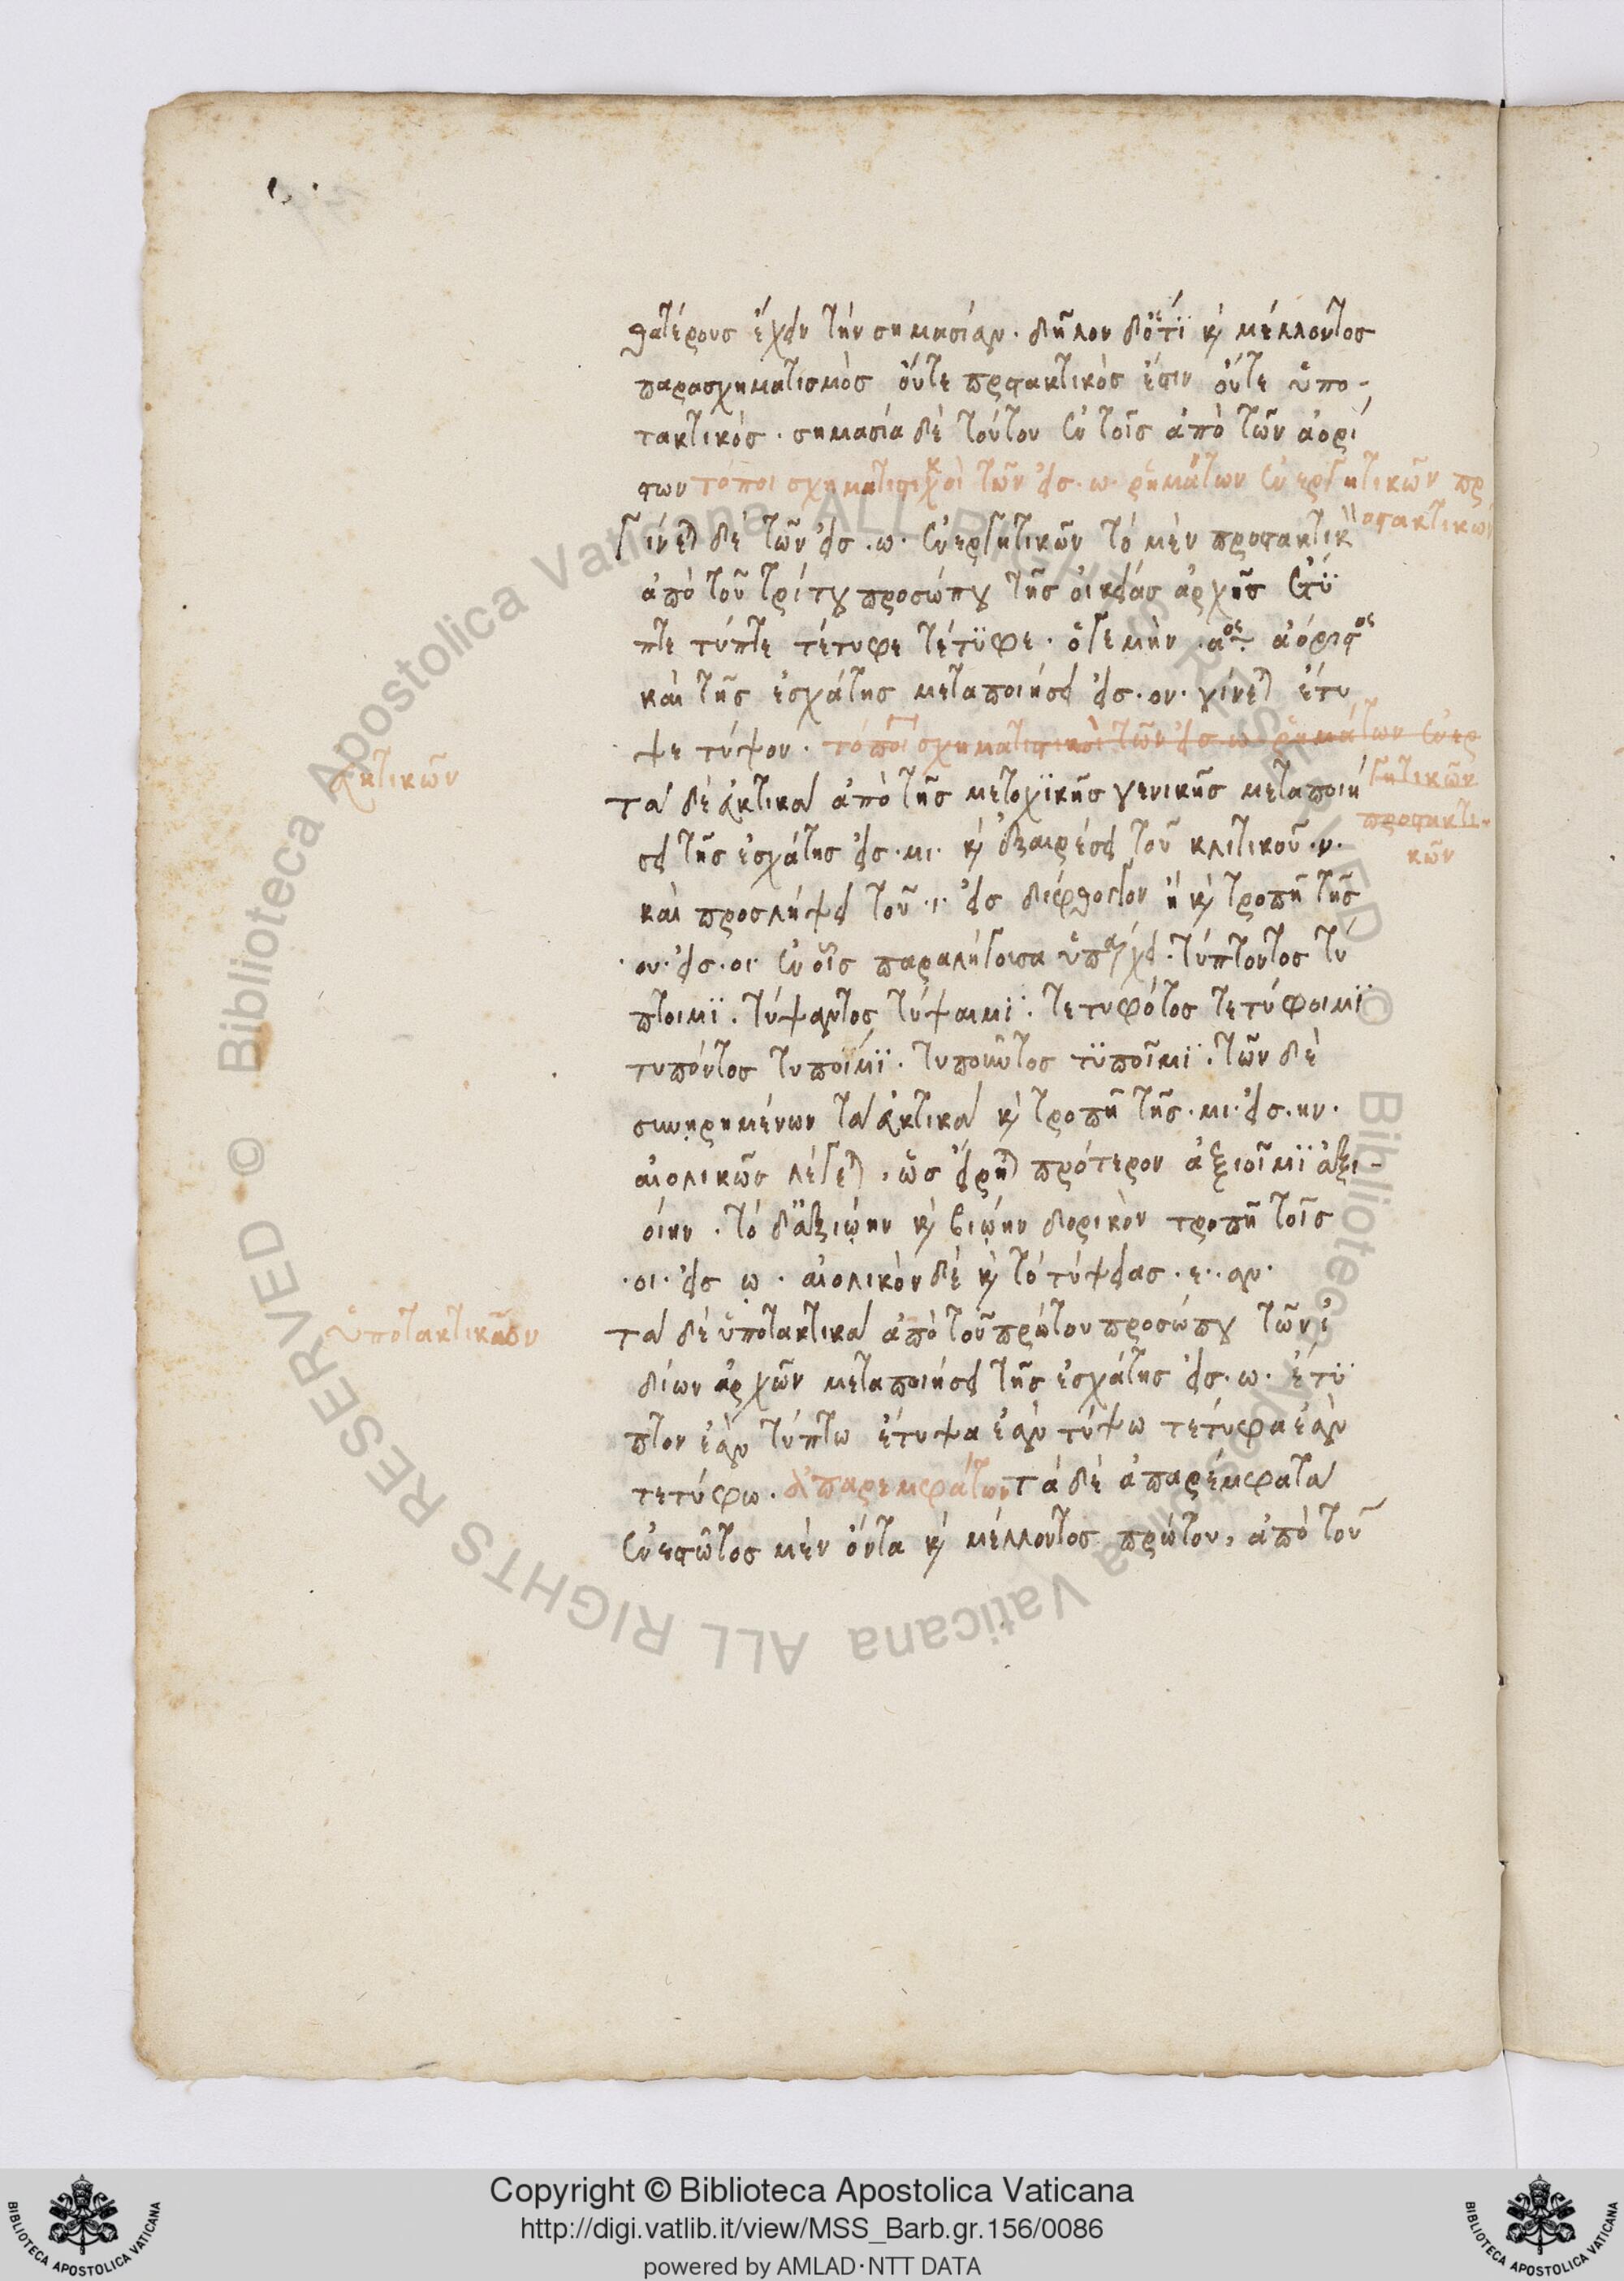 θατέρους ἔχειν τὴν σημασίαν· δῆλον δ' ὅτι καὶ μέλλοντος
παρασχηματισμὸς οὔτε προστακτικός ἐστιν οὔτε ὑπο-
τακτικός· σημασία δὲ τούτου ἐν τοῖς ἀπὸ τῶν ἀορί
στων τόποι σχηματιστικοὶ τῶν εἰς ·ω· ῥημάτων ἐνεργητικῶν πρ
οστακτικῶν
γίνεται δὲ τῶν εἰς ·ω· ἐνεργητικῶν τὸ μὲν προστακτικ
ἀπὸ τοῦ τρίτου προσώπου τῆς οἰκείας ἀρχῆς ἔτυ
πτε τύπτε τέτυφε τέτυφε· ὁ γε μὴν αος ἀόριστος
καὶ τῆς ἐσχάτης μεταποιήσει εἰς ·ον· γίνεται ἔτυ
ψε τύψον· τόποι σχηματιστικοὶ τῶν εἰς ω ῥημάτων ἐνερ
γητικῶν
προστακτι-
κῶν
εὐκτικῶν
τὰ δὲ εὐκτικὰ ἀπὸ τῆς μετοχικῆς γενικῆς μεταποιή
σει τῆς ἐσχάτης εἰς ·μι· καὶ ἐξαιρέσει τοῦ κλιτικοῦ ·ν·
καὶ προσλήψει τοῦ ·ι· εἰς δίφθογγον ἢ καὶ τροπῇ τῆς
·ου· εἰς ·οι· ἐν οἷς παραλήγουσα ὑπάρχει· τύπτοντος τύ
πτοιμι· τύψαντος τύψαιμι· τετυφότος τετύφοιμι
τυπόντος τυποίμι· τυποῦντος τυποῖμι· τῶν δὲ
συνῃρημένων τὰ εὐκτικὰ καὶ τροπῇ τῆς ·μι· εἰς ·ην·
αἰολικῶς λέγεται, ὡς εἴρηται πρότερον ἀξιοῖμι ἀξι-
οίην· τὸ δ' ἀξιῴην καὶ βιῴην δορικὸν τροπῇ τοῖς
·οι· εἰς ῳ· αἰολικὸν δὲ καὶ τὸ τύψειας ·ε··αν·
ὑποτακτικῶν
τὰ δὲ ὑποτακτικὰ ἀπὸ τοῦ πρώτου προσώπου τῶν ἰ
δίων ἀρχῶν μεταποιήσει τῆς ἐσχάτης εἰς ·ω· ἔτυ
πτον ἐὰν τύπτω ἔτυψα ἐὰν τύψω τέτυφα ἐὰν
τετύφω· ἀπαρεμφάτων τὰ δὲ ἀπαρέμφατα
ἐνεστῶτος μὲν ὄντα καὶ μέλλοντος πρώτου, ἀπὸ τοῦ
Copyright © Biblioteca Apostolica Vaticana
http://digi.vatlib.it/view/MSS_Barb.gr.156/0086
powered by AMLAD·NTT DATA